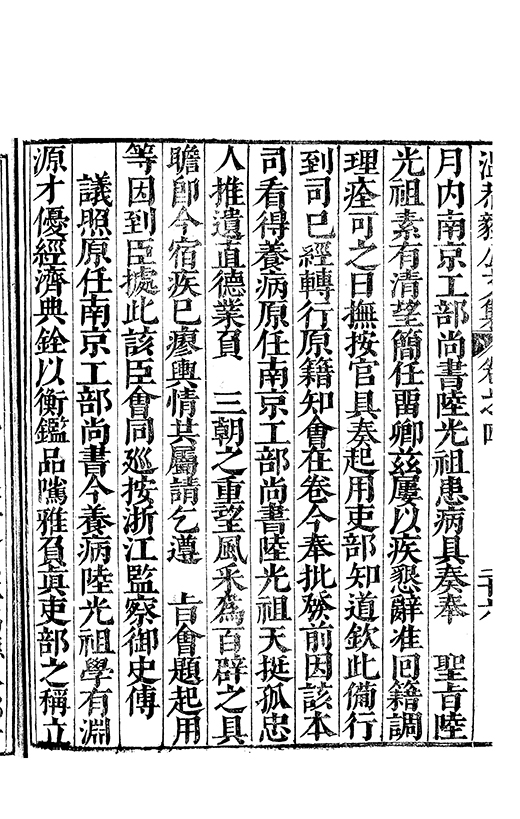 溫恭毅公文集 卷之四 二十六
月內南京工部尚書陸光祖患病具奏奉　聖旨陸
光祖素有清望簡任畱卿茲屢以疾懇辭准回籍調
理痊可之日撫按官具奏起用吏部知道欽此備行
到司已經轉行原籍知會在卷今奉批發前因該本
司看得養病原任南京工部尚書陸光祖天挺孤忠
人推遺直德業負　三朝之重望風采爲百辟之具
瞻卽今宿疾已瘳輿情共屬請乞遵　旨會題起用
等因到臣據此該臣會同巡按浙江監察御史傅
議照原任南京工部尚書今養病陸光祖學有淵
源才優經濟典銓以衡鑑品隲雅負眞吏部之稱立